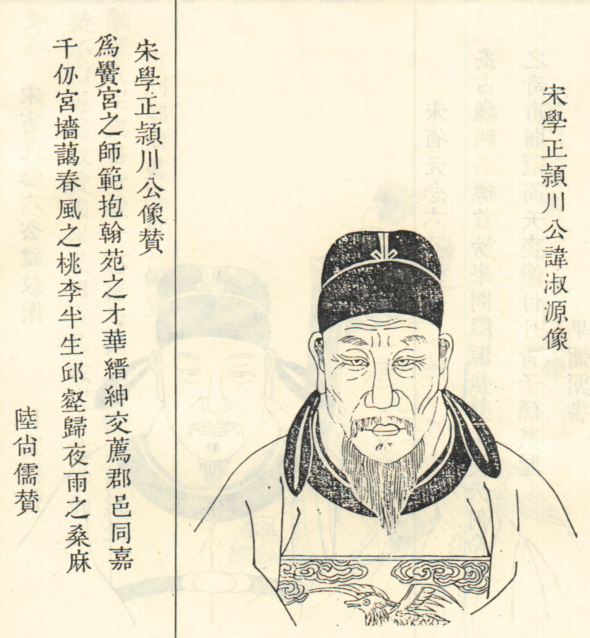 宋學正頴川公諱淑源像
宋學正頴川公像贊
為黌宮之師範抱翰苑之才華縉紳交薦郡邑同嘉
千仞宮墻藹春風之桃李半生邱壑歸夜雨之桑麻
陸尙儒贊